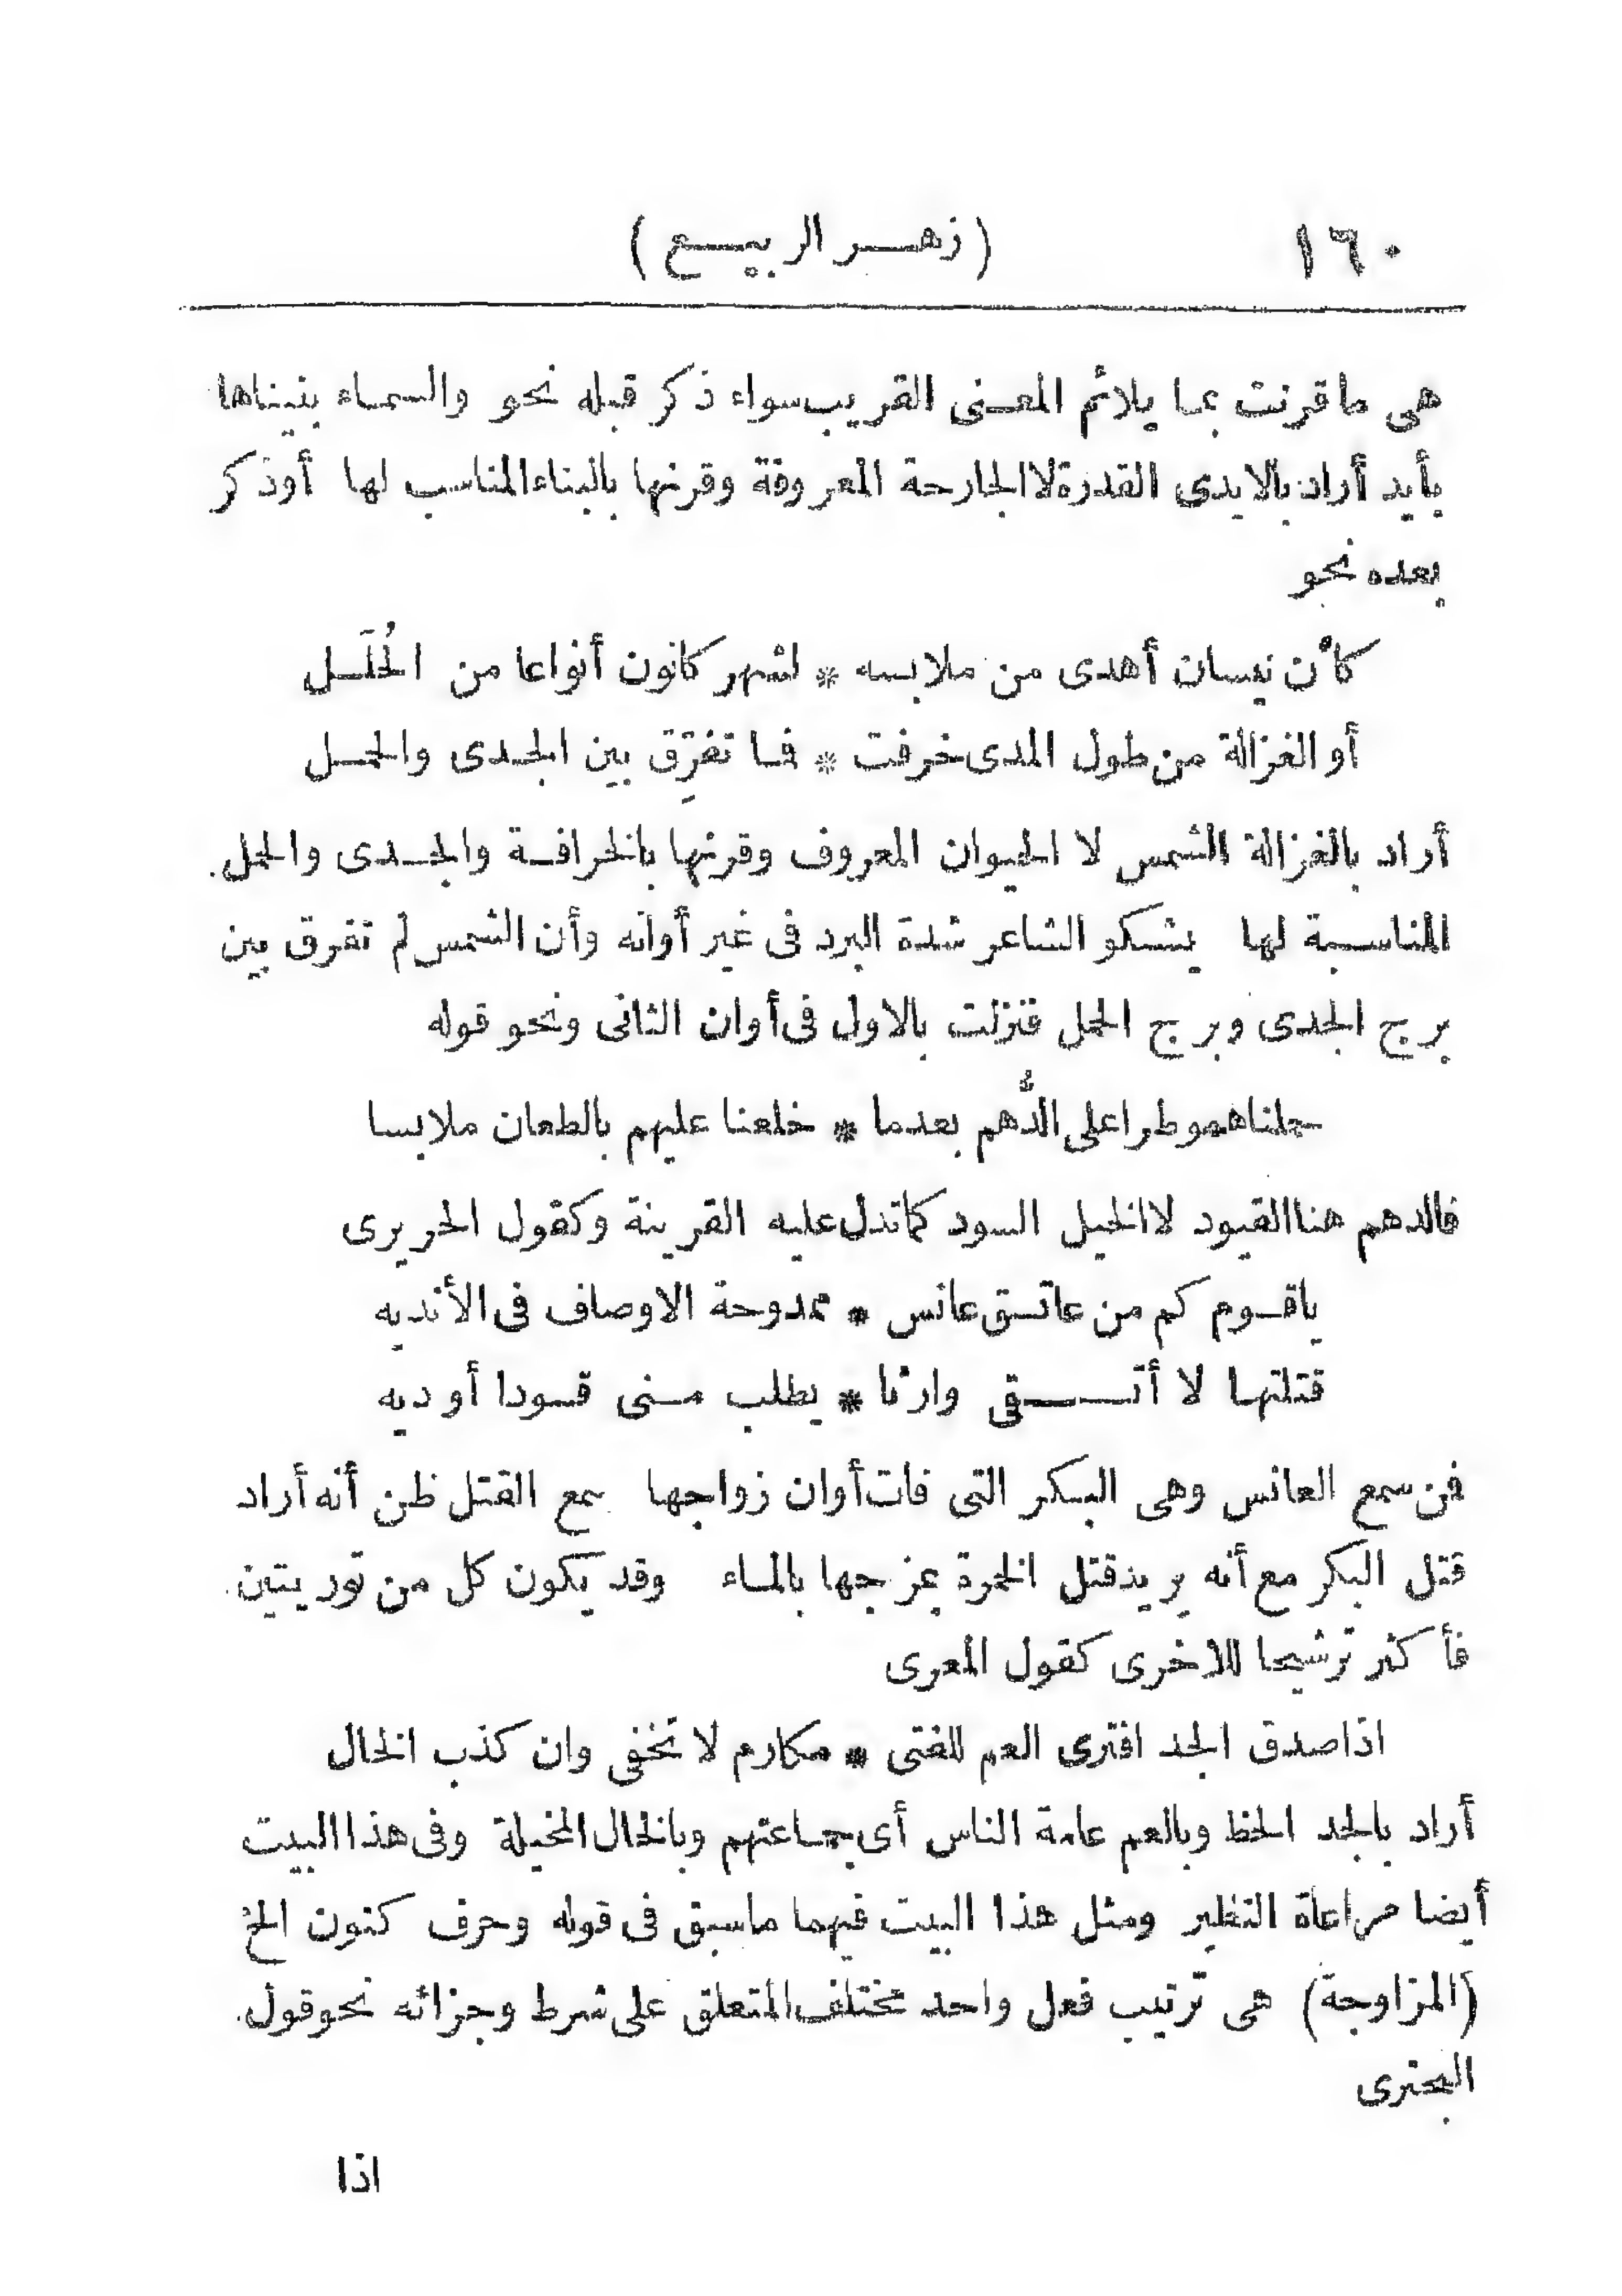 ١٦٠ (زهر الربيع)
هى ما قرنت بما يلائم المعنى القريب سواء ذكر قبله نحو والسماء بنيناها
بأيد أراد بالايدى القدرة لا الجارحة المعروفة وقرنها بالبناء المناسب لها أوذكر
بعده نحو
كأن نيسان أهدى من ملابسه * لشهر كانون أنواعا من الحُلَل
أو الغزالة من طول المدى خرفت * فما تفرّق بين الجدى والحمل
أراد بالغزالة الشمس لا الحيوان المعروف وقرنها بالخرافة والجدى والحمل
المناسبة لها يشكو الشاعر شدة البرد فى غير أوانه وأن الشمس لم تفرق بين
برج الجدى وبرج الحمل فنزلت بالاول فى أوان الثانى ونحو قوله
حملناهمو طرا على الدُّهم بعدما * خلعنا عليهم بالطعان ملابسا
فالدهم هنا القيود لا الخيل السود كما تدل عليه القرينة وكقول الحريرى
يا قوم كم من عاتق عانس * ممدوحة الاوصاف فى الأنديه
قتلتها لا أتقى وارثا * يطلب منى قودا أو ديه
فن سمع العانس وهى البكر التى فات أوان زواجها سمع القتل ظن أنه أراد
قتل البكر مع أنه يريد قتل الخمرة بمزجها بالماء وقد يكون كل من توريتين
فأكثر ترشيحا للاخرى كقول المعرى
اذا صدق الجد افترى العم للفتى * مكارم لا تخفى وان كذب الخال
أراد بالجد الحظ وبالعم عامة الناس أى جماعتهم وبالخال المخيلة وفى هذا البيت
أيضا مراعاة النظير ومثل هذا البيت فيهما ما سبق فى قوله وحرف كنون الخ
(المزاوجة) هى ترتيب فعل واحد مختلف المتعلق على شرط وجزائه نحو قول
البحترى
اذا